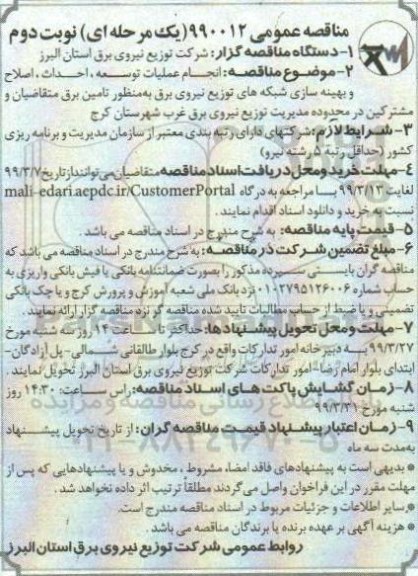 مناقصه عمومی ۹۹۰۰۱۲(یک مرحله ای) نوبت دوم
۱-دستگاه مناقصه گزار: شرکت توزیع نیروی برق استان البرز
۲-موضوع مناقصه: انجام عملیات توسعه ، احداث ، اصلاح
و بهینه سازی شبکه های توزیع نیروی برق به‌منظور تامین برق متقاضیان و
مشترکین در محدوده مدیریت توزیع نیروی برق غرب شهرستان کرج
۳-شرایط لازم: شرکتهای دارای رتبه بندی معتبر از سازمان مدیریت و برنامه ریزی
کشور (حداقل رتبه ۵ رشته نیرو)
۴-مهلت خرید ومحل دریافت اسناد مناقصه متقاضیان می‌توانند از تاریخ ۹۹/۳/۷
لغایت ۹۹/۳/۱۳ با مراجعه به درگاه mali-edari.aepdc.ir/CustomerPortal
نسبت به خرید و دانلود اسناد اقدام نمایند .
۵-قیمت پایه مناقصه: به شرح مندرج در اسناد مناقصه می باشد .
۶-مبلغ تضمین شرکت در مناقصه: به شرح مندرج در اسناد مناقصه می باشد که
مناقصه گران بایستی سپرده مذکور را بصورت ضمانتنامه بانکی یا فیش بانکی واریزی به
حساب شماره ۰۱۰۲۷۹۵۱۲۶۰۰۶ نزد بانک ملی شعبه آموزش و پرورش کرج و یا چک بانکی
تضمینی و یا ضبط از حساب مطالبات تایید شده مناقصه گر نزد مناقصه گزار ارائه نمایند .
۷-مهلت ومحل تحویل پیشنهادها: حداکثر تا ساعت ۱۴ روز سه شنبه مورخ
۹۹/۳/۲۷ به دبیرخانه امور تدارکات واقع در کرج بلوار طالقانی شمالی-پل آزادگان-
ابتدای بلوار امام رضا-امور تدارکات شرکت توزیع نیروی برق استان البرز تحویل نمایند .
۸-زمان گشایش پاکت های اسناد مناقصه: راس ساعت: ۱۴:۳۰ روز
شنبه مورخ ۹۹/۳/۳۱
۹-زمان اعتبار پیشنهاد قیمت مناقصه گران: از تاریخ تحویل پیشنهاد
به‌مدت سه ماه
●بدیهی است به پیشنهادهای فاقد امضاء، مشروط ، مخدوش و یا پیشنهادهایی که پس از
مهلت مقرر در این فراخوان واصل می گردند مطلقاً ترتیب اثر داده نخواهد شد .
●سایر اطلاعات و جزئیات مربوط در اسناد مناقصه مندرج است.
● هزینه آگهی بر عهده برنده یا برندگان مناقصه می باشد .
روابط عمومی شرکت توزیع نیروی برق استان البرز